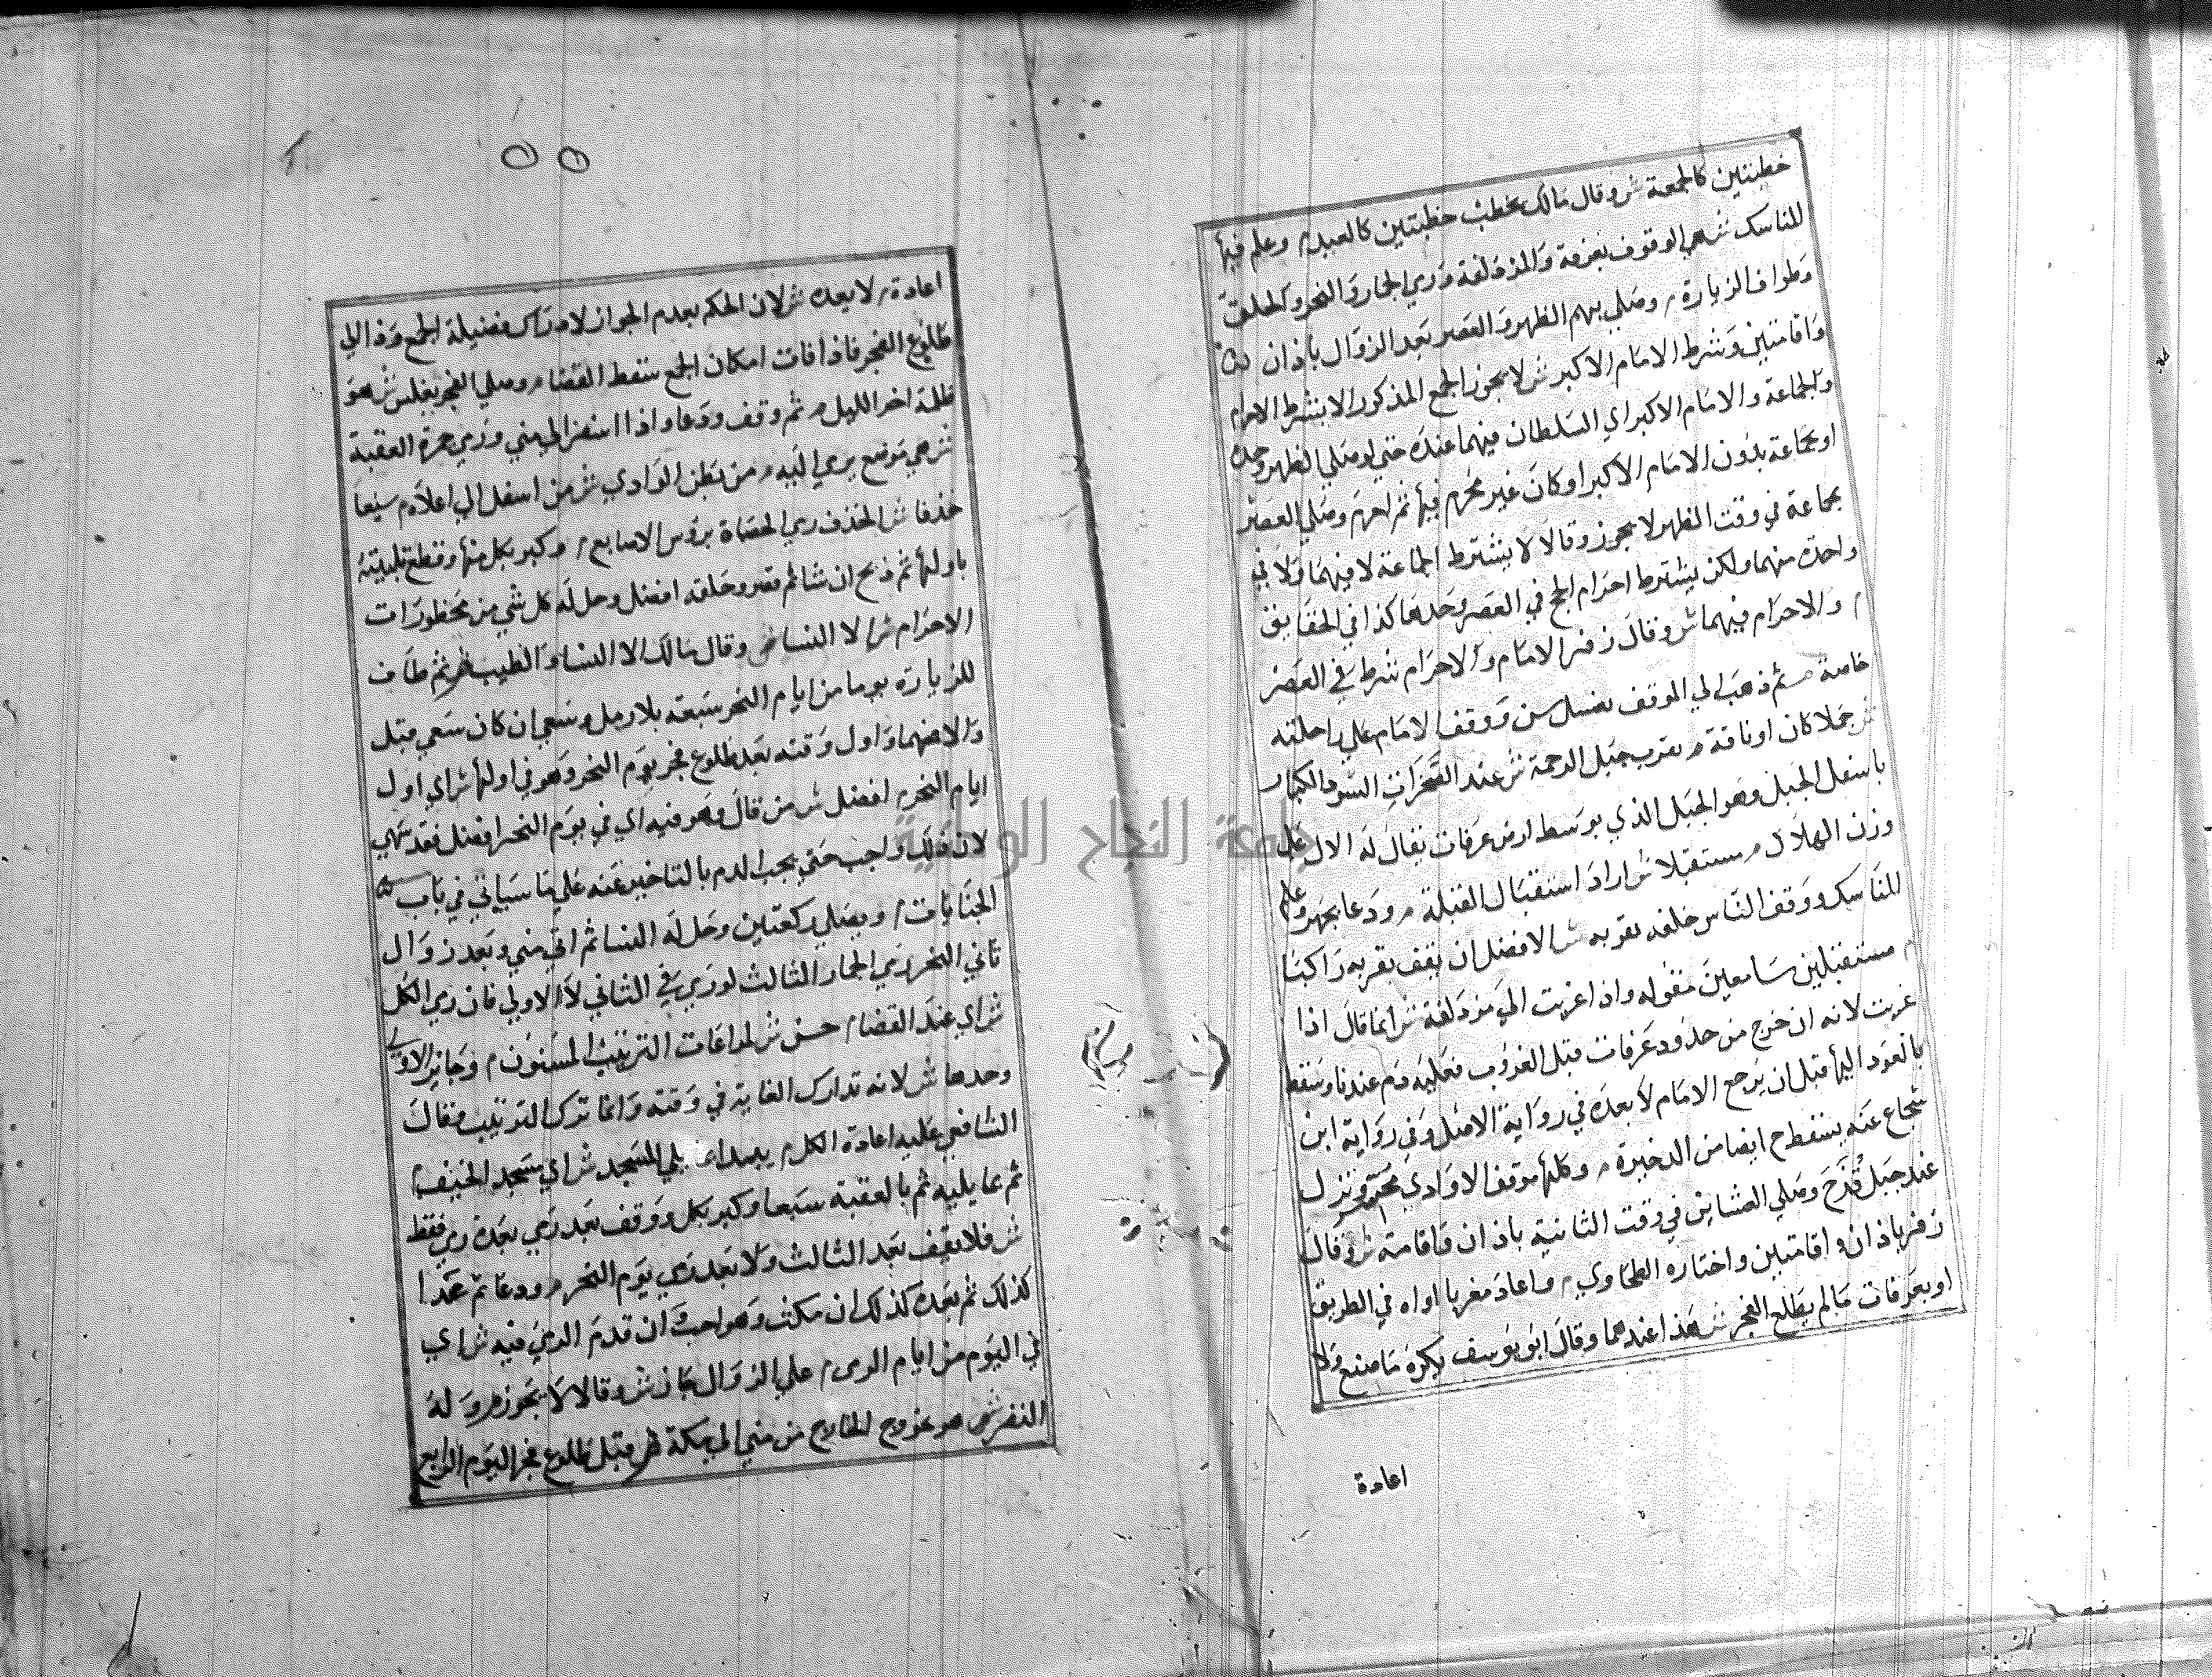 خطبتين كالجمعة ش وقال مالك يخطب خطبتين كالعيد م وعلم فيها
المناسك ش هي الوقوف بعرفة والمزدلفة ورمي الجمار والنحر والحلق
وطواف الزيارة م وصلي بهم الظهر والعصر بعد الزوال باذان
واقامتين وشرط الامام الاكبر ش لا يجوز الجمع المذكور الا بشرط الامام
والجماعة والامام الاكبر اي السلطان فيهما عنده حتي لو صلي الظهر وحده
او بجماعة بدون الامام الاكبر او كان غير محرم فيها ثم احرم وصلي العصر
بجماعة في وقت الظهر لا يجوز وقالا لا يشترط الجماعة لا فيهما ولا في
واحدة منهما ولكن يشترط احرام الحج في العصر وحدها كذا في الحقايق
م والاحرام فيهما ش وقال زفر الامام والاحرام شرط في العصر
خاصة م ثم ذهب الي الموقف بغسل سن ووقف الامام علي راحلته
ش جملا كان او ناقة م بقرب جبل الرحمة ش عند الصخرات السود الكبار
باسفل الجبل وهو الجبل الذي بوسط ارض عرفات يقال له الال علي
وزن الهلال م مستقبلا ش اراد استقبال القبلة م ودعا بجهر وعلم
المناسك ووقف الناس خلفه بقربه ش الافضل ان يقف بقربه راكبا
م مستقبلين سامعين مقوله واذا غربت الي مزدلفة ش انما قال اذا
غربت لانه ان خرج من حدود عرفات قبل الغروب فعليه دم عندنا وسقط
بالعود اليها قبل ان يرجع الامام لا بعده في رواية الاصل وفي رواية ابن
شجاع عنه يسقط ح ايضا من الذخيرة م وكلها موقف الا وادي محسر ونزل
عند جبل قزح وصلي العشاين في وقت الثانية باذان واقامة ش وقال
زفر باذان واقامتين واختاره الطحاوي م واعاد مغربا اداه في الطريق
او بعرفات مالم يطلع الفجر ش هذا عندهما وقال ابو يوسف يكره ما صنع ولا
اعادة
اعادة م لا بعده ش لان الحكم بعدم الجواز لادراك فضيلة الجمع وذا الي
طلوع الفجر فاذا فات امكان الجمع سقط القضا م وصلي الفجر بغلس ش هو
ظلمة اخر الليل م ثم وقف ودعا واذا اسفر الي مني ورمي جمرة العقبة
ش هي موضع يرمي اليه م من بطن الوادي ش من اسفل الي اعلاه م سبعا
خذفا ش الخذف رمي الحصاة برؤس الاصابع م وكبر بكل منها وقطع تلبيته
باولها ثم ذبح ان شا ثم قصر وحلقه افضل وحل له كل شي من محظورات
الاحرام ش الا النسا ش وقال مالك الا النسا والطيب م ثم طاف
للزيارة يوما من ايام النحر سبعه بلا رمل وسعي ان كان سعي قبل
والا فهما واول وقته بعد طلوع فجر يوم النحر وهو في اولها ش اي اول
ايام النحر م افضل ش من قال وهو فيه اي في يوم النحر افضل فقد سهي
لان ذلك واجب حتي يجب الدم بالتاخير عنه علي ما سياتي في باب
الجنايات م ويصلي ركعتين وحل له النسا ثم اتي مني وبعد زوال
ثاني النحر رمي الجمار الثالث لو رمي في الثاني لا الاولي فان رمي الكل
ش اي عند القضا م حسن ش لمراعات الترتيب المسنون م وجايز الاولي
وحدها ش لانه تدارك الغاية في وقته وانما ترك الترتيب وقال
الشافعي عليه اعادة الكل م يبدا يلي المسجد ش اي مسجد الخيف م
ثم بما يليه ثم بالعقبة سبعا وكبر بكل ووقف بعد رمي بعده رمي فقط
ش فلا يقف بعد الثالث ولا بعد رمي يوم النحر م ودعا ثم غدا
كذلك ثم بعده كذلك ان مكث وهو احب وان قدم الرمي فيه ش اي
في اليوم من ايام الرمي م علي الزوال جاز ش وقالا لا يجوز م وله
النفر ش هو خروج الحاج من مني الي مكة م قبل طلوع فجر اليوم الرابع
جامعة النجاح الوطنية